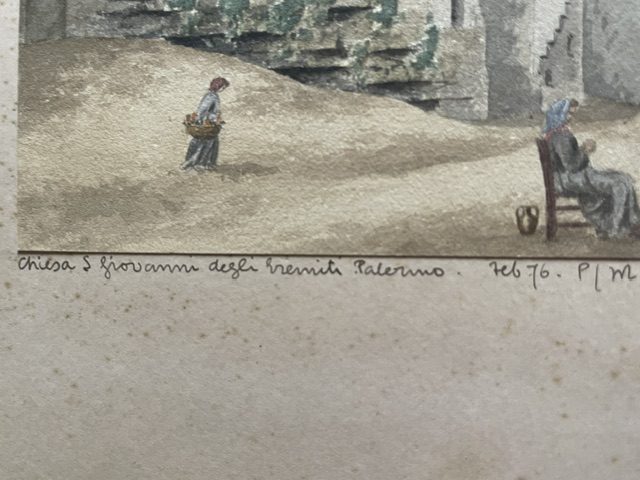 Chiesa S Giovanni degli Eremiti Palermo. Feb 76. P/M